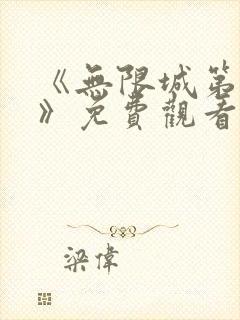 《無限城第
》免費觀看
梁偉